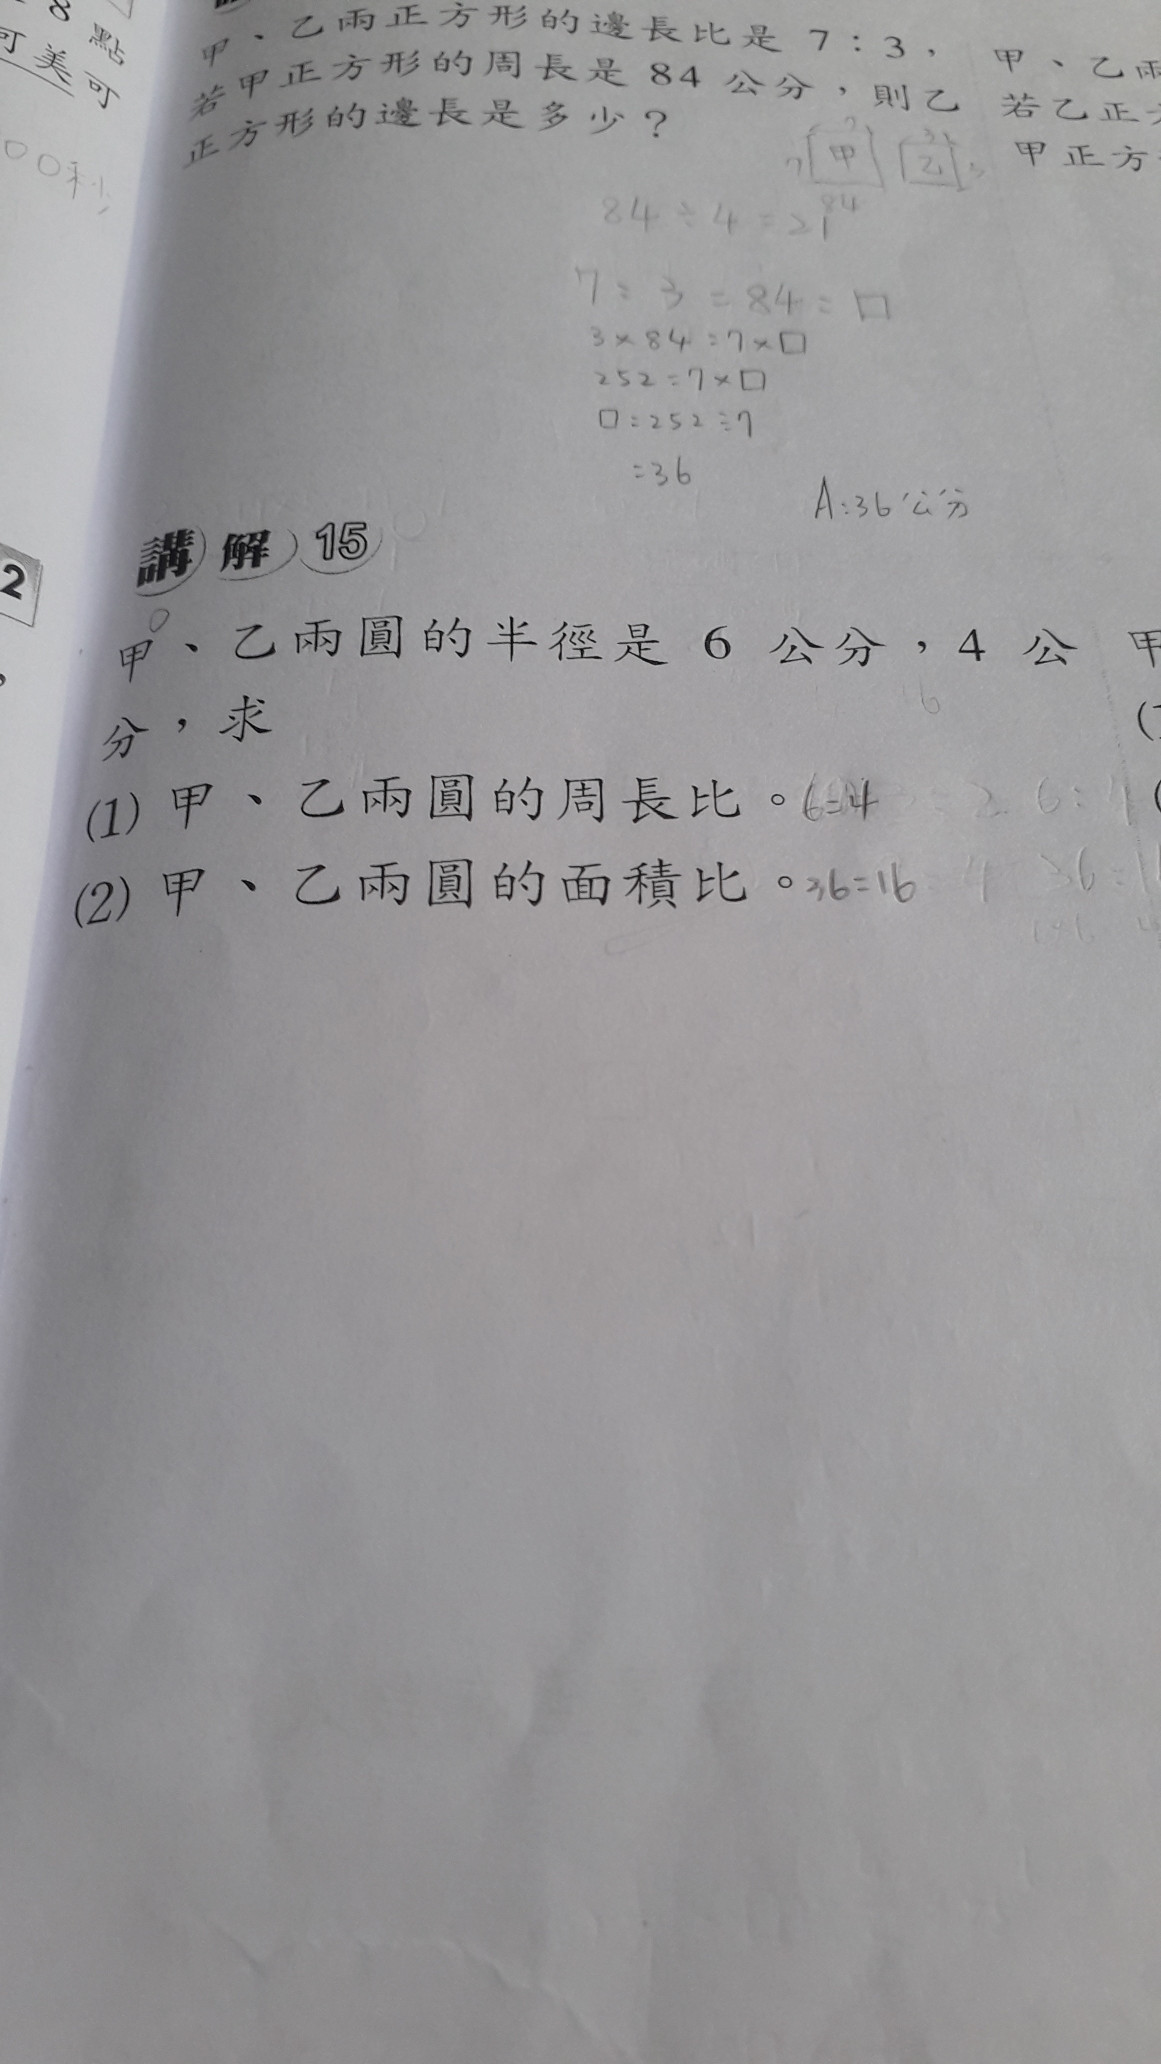 8點
可美可
00秒
2
甲、乙兩正方形的邊長比是 7:3,
若甲正方形的周長是 84 公分,則乙
正方形的邊長是多少?
甲 乙
84÷4=21
84
7:3=84:□
3×84=7×□
252=7×□
□=252÷7
=36
A:36公分
甲、乙兩
若乙正方
甲正方
講解15
甲、乙兩圓的半徑是 6 公分,4 公
分,求
(1) 甲、乙兩圓的周長比。6=4
(2) 甲、乙兩圓的面積比。36=16
甲